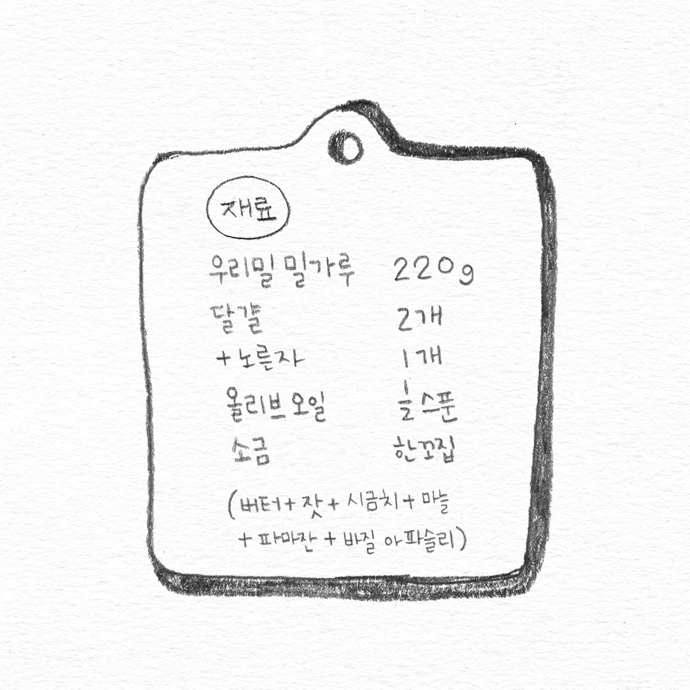 재료
우리밀 밀가루 220g
달걀 2개
+노른자 1개
올리브 오일 ½스푼
소금 한꼬집
(버터+잣+시금치+마늘
+파마잔+바질 아 파슬리)